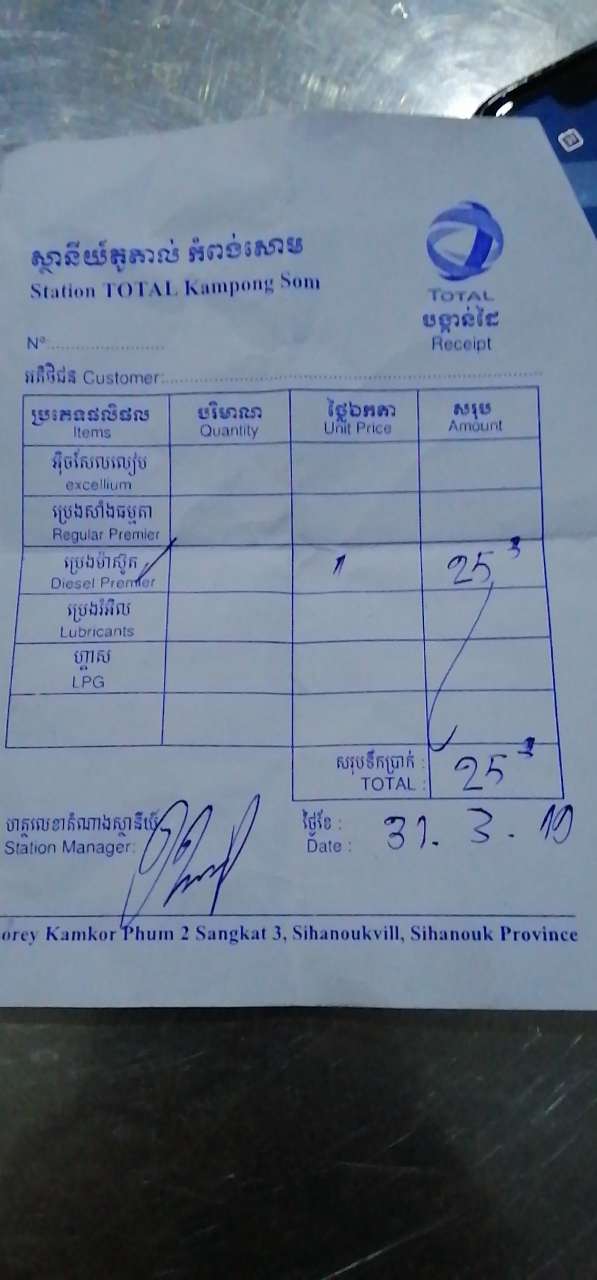 ស្ថានីយ៍តូតាល់ កំពង់សោម
Station TOTAL Kampong Som
TOTAL
បង្កាន់ដៃ
Receipt
Nº:
អតិថិជន Customer:
ប្រភេទផលិផល បរិមាណ ថ្លៃឯកតា សរុប
Items Quantity Unit Price Amount
អ៊ិចសែលលៀប
excellium
ប្រេងសាំងធម្មតា
Regular Premier
ប្រេងម៉ាស៊ូត
Diesel Premier 25
ប្រេងរំអិល
Lubricants
ហ្គាស
LPG
សរុបទឹកប្រាក់ :
TOTAL : 25
ហត្ថលេខាតំណាងស្ថានីយ៍ ថ្ងៃខែ :
Station Manager: Date : 31. 3. 19
orey Kamkor Phum 2 Sangkat 3, Sihanoukvill, Sihanouk Province